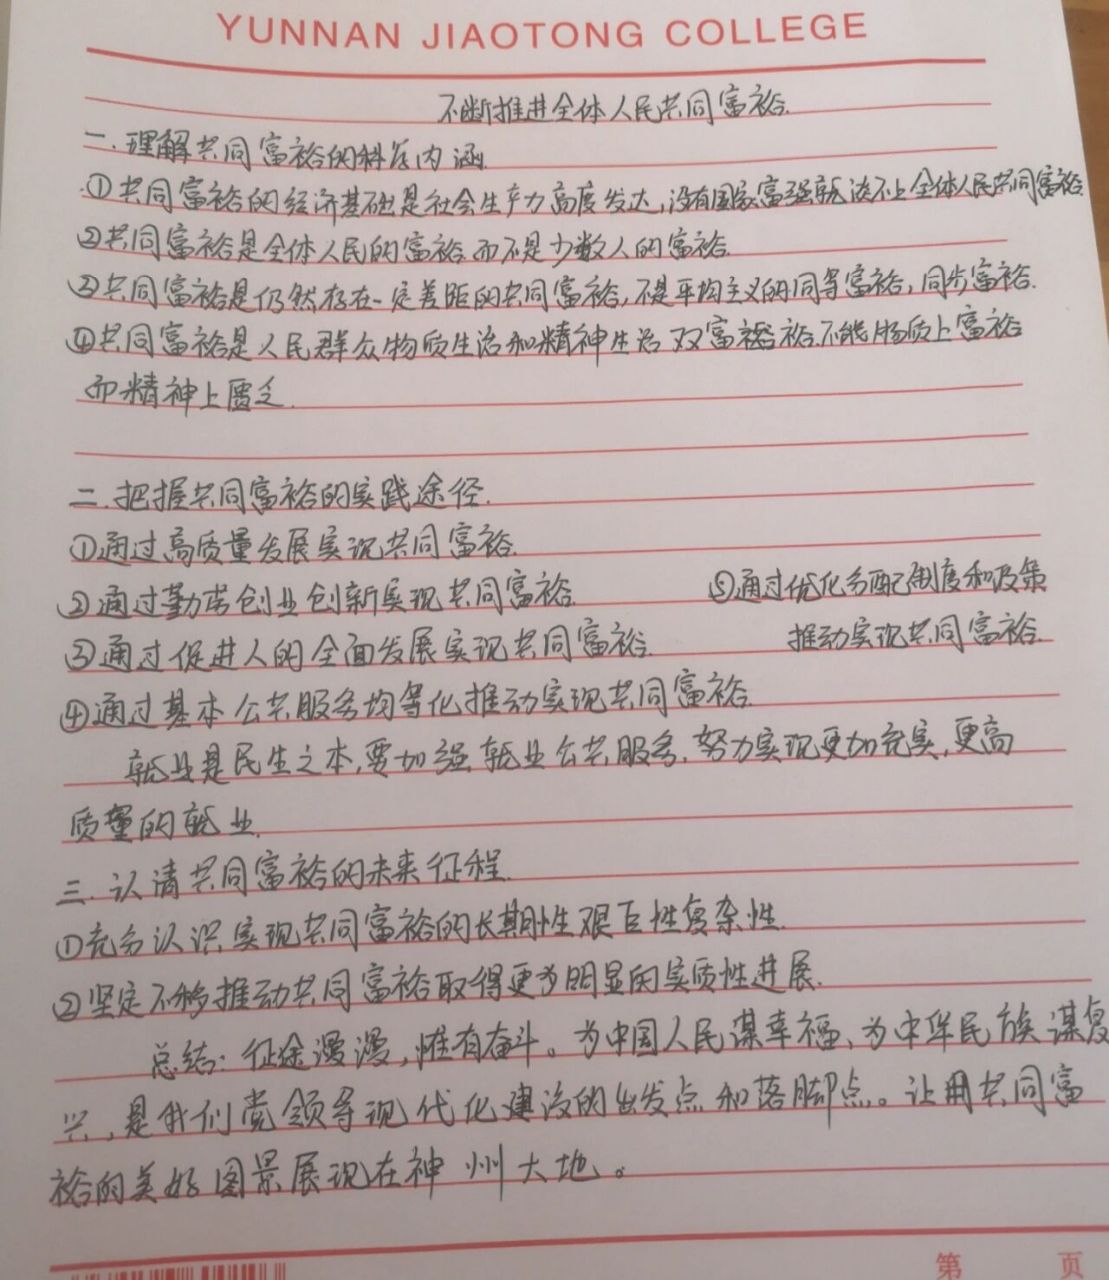 YUNNAN JIAOTONG COLLEGE
不断推进全体人民共同富裕.
一.理解共同富裕的科学内涵.
①共同富裕的经济基础是社会生产力高度发达,没有国家富强就谈不上全体人民共同富裕
②共同富裕是全体人民的富裕而不是少数人的富裕.
③共同富裕是仍然存在一定差距的共同富裕,不是平均主义的同等富裕,同步富裕.
④共同富裕是人民群众物质生活和精神生活双富裕.不能物质上富裕
而精神上匮乏.
二.把握共同富裕的实践途径.
①通过高质量发展实现共同富裕.
②通过勤劳创业创新实现共同富裕.
⑤通过优化分配制度和政策
③通过促进人的全面发展实现共同富裕.
推动实现共同富裕.
④通过基本公共服务均等化推动实现共同富裕.
就业是民生之本,要加强就业公共服务.努力实现更加充实,更高
质量的就业.
三.认请共同富裕的未来征程.
①充分认识实现共同富裕的长期性艰巨性复杂性.
②坚定不移推动共同富裕取得更为明显的实质性进展.
总结:征途漫漫,惟有奋斗。为中国人民谋幸福、为中华民族谋复
兴,是我们党领导现代化建设的出发点和落脚点。让用共同富
裕的美好图景展现在神州大地。
第 页